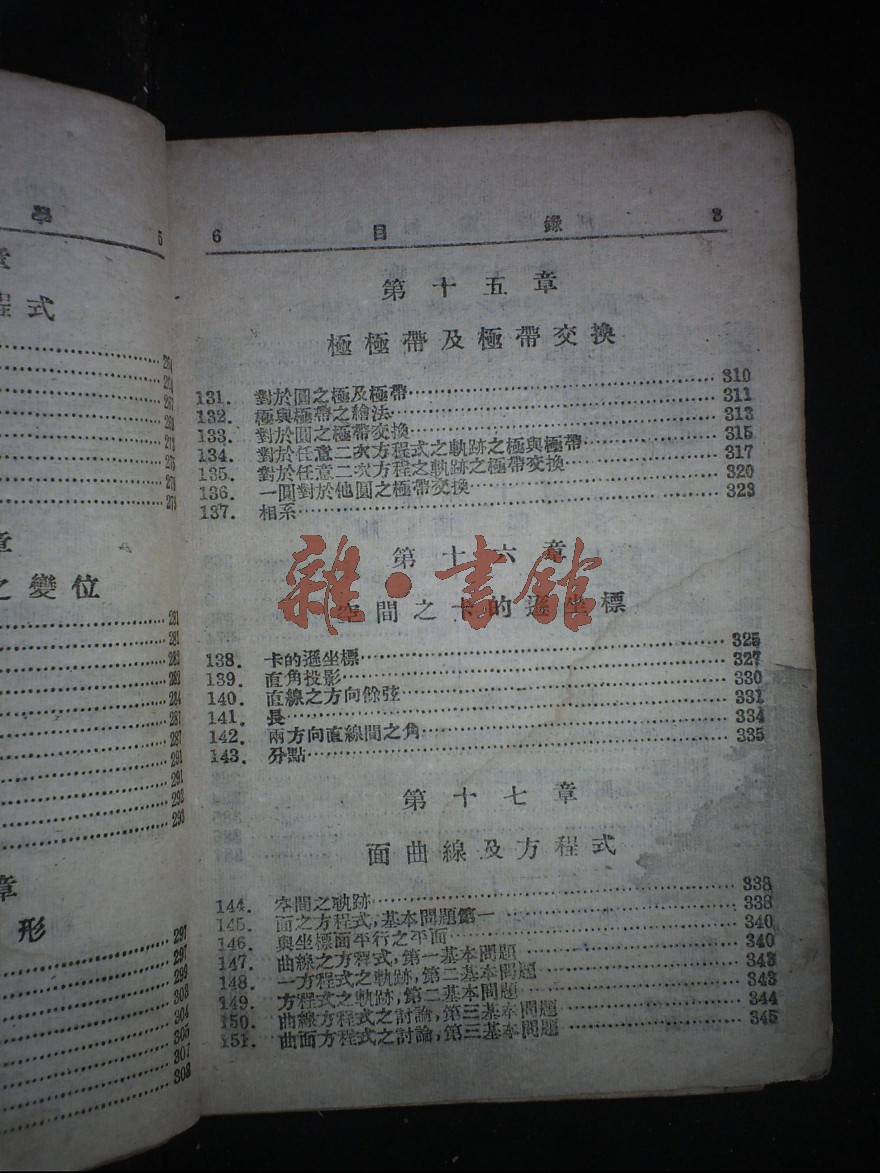 學
5
章
程式
264
264
267
268
273
275
276
278
章
之變位
281
281
282
283
284
287
287
291
291
293
293
章
形
297
297
299
303
304
305
307
308
6 目錄 3
第十五章
極極帶及極帶交換
131. 對於圓之極及極帶 310
132. 極與極帶之繪法 311
133. 對於圓之極帶交換 313
134. 對於任意二次方程式之軌跡之極與極帶 315
135. 對於任意二次方程之軌跡之極帶交換 317
136. 一圓對於他圓之極帶交換 320
137. 相系 323
第十六章
空間之卡的遜坐標
138. 卡的遜坐標 325
139. 直角投影 327
140. 直線之方向餘弦 330
141. 長 331
142. 兩方向直線間之角 334
143. 分點 335
第十七章
面曲線及方程式
144. 空間之軌跡 338
145. 面之方程式,基本問題第一 338
146. 與坐標面平行之平面 340
147. 曲線之方程式,第一基本問題 340
148. 一方程式之軌跡,第二基本問題 343
149. 方程式之軌跡,第二基本問題 343
150. 曲線方程式之討論,第三基本問題 344
151. 曲面方程式之討論,第三基本問題 345
雜·書館